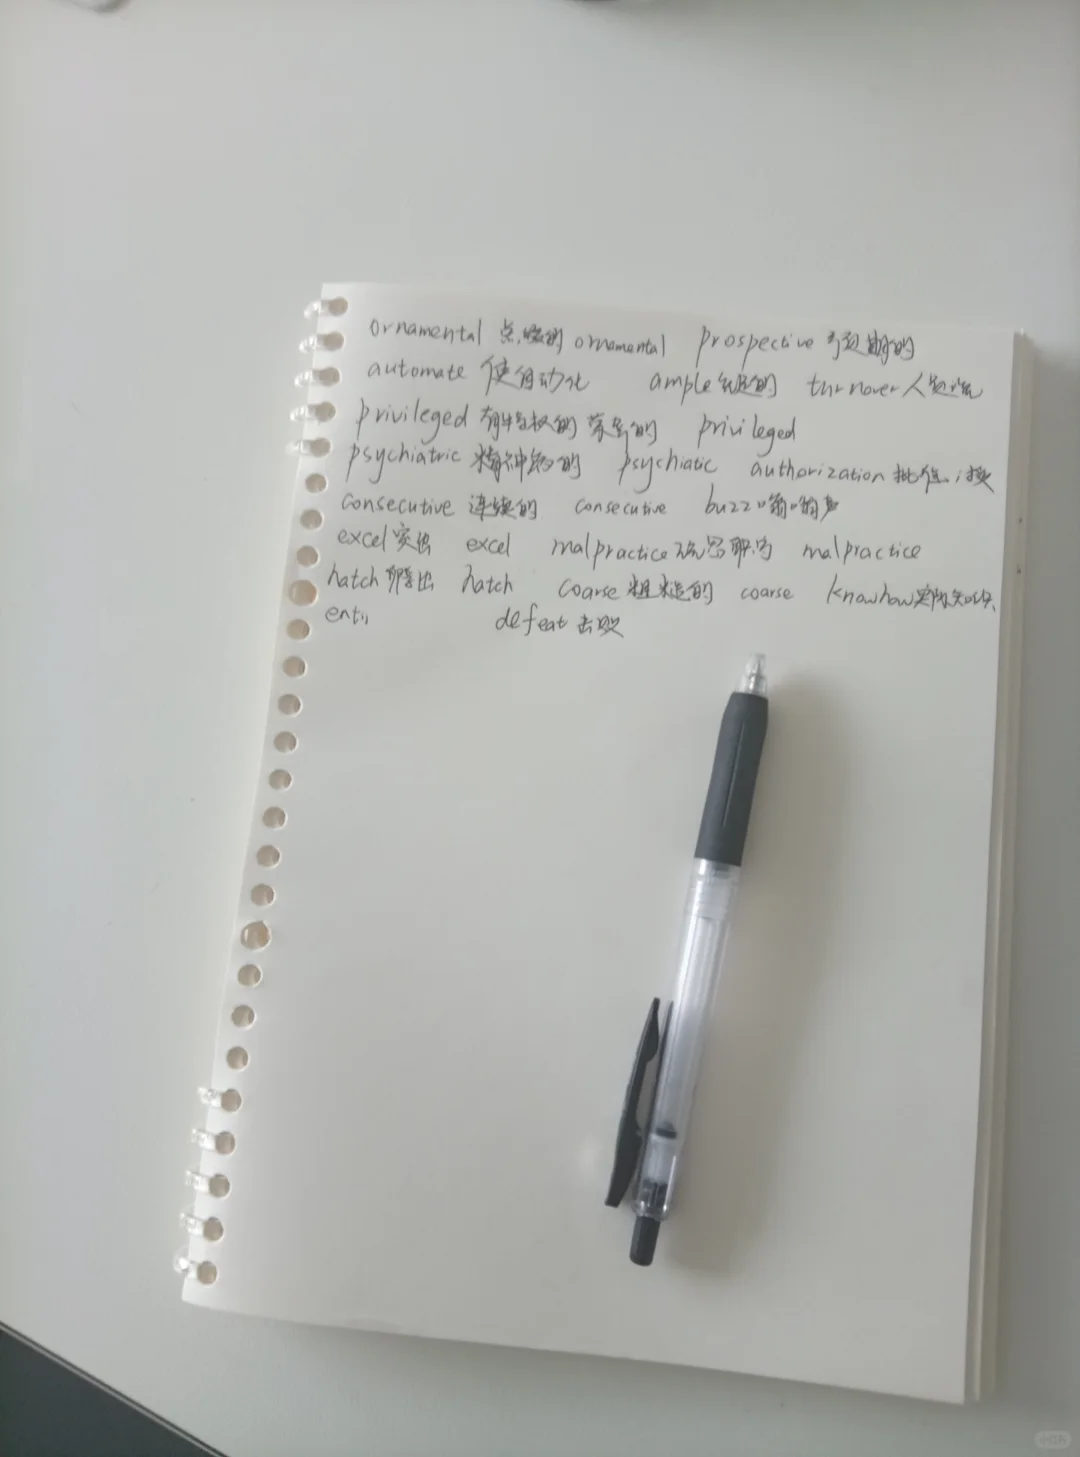 ornamental 点缀的 ornamental prospective 预期的
automate 使自动化 ample 充足的 turnover 人员流
privileged 有特权的 荣幸的 privileged
psychiatric 精神病的 psychiatic authorization 批准;授
consecutive 连续的 consecutive buzz 嗡嗡声
excel 突出 excel malpractice 玩忽职守 malpractice
hatch 孵出 hatch coarse 粗糙的 coarse knowhow 实际知识
enti defeat 击败
小红书